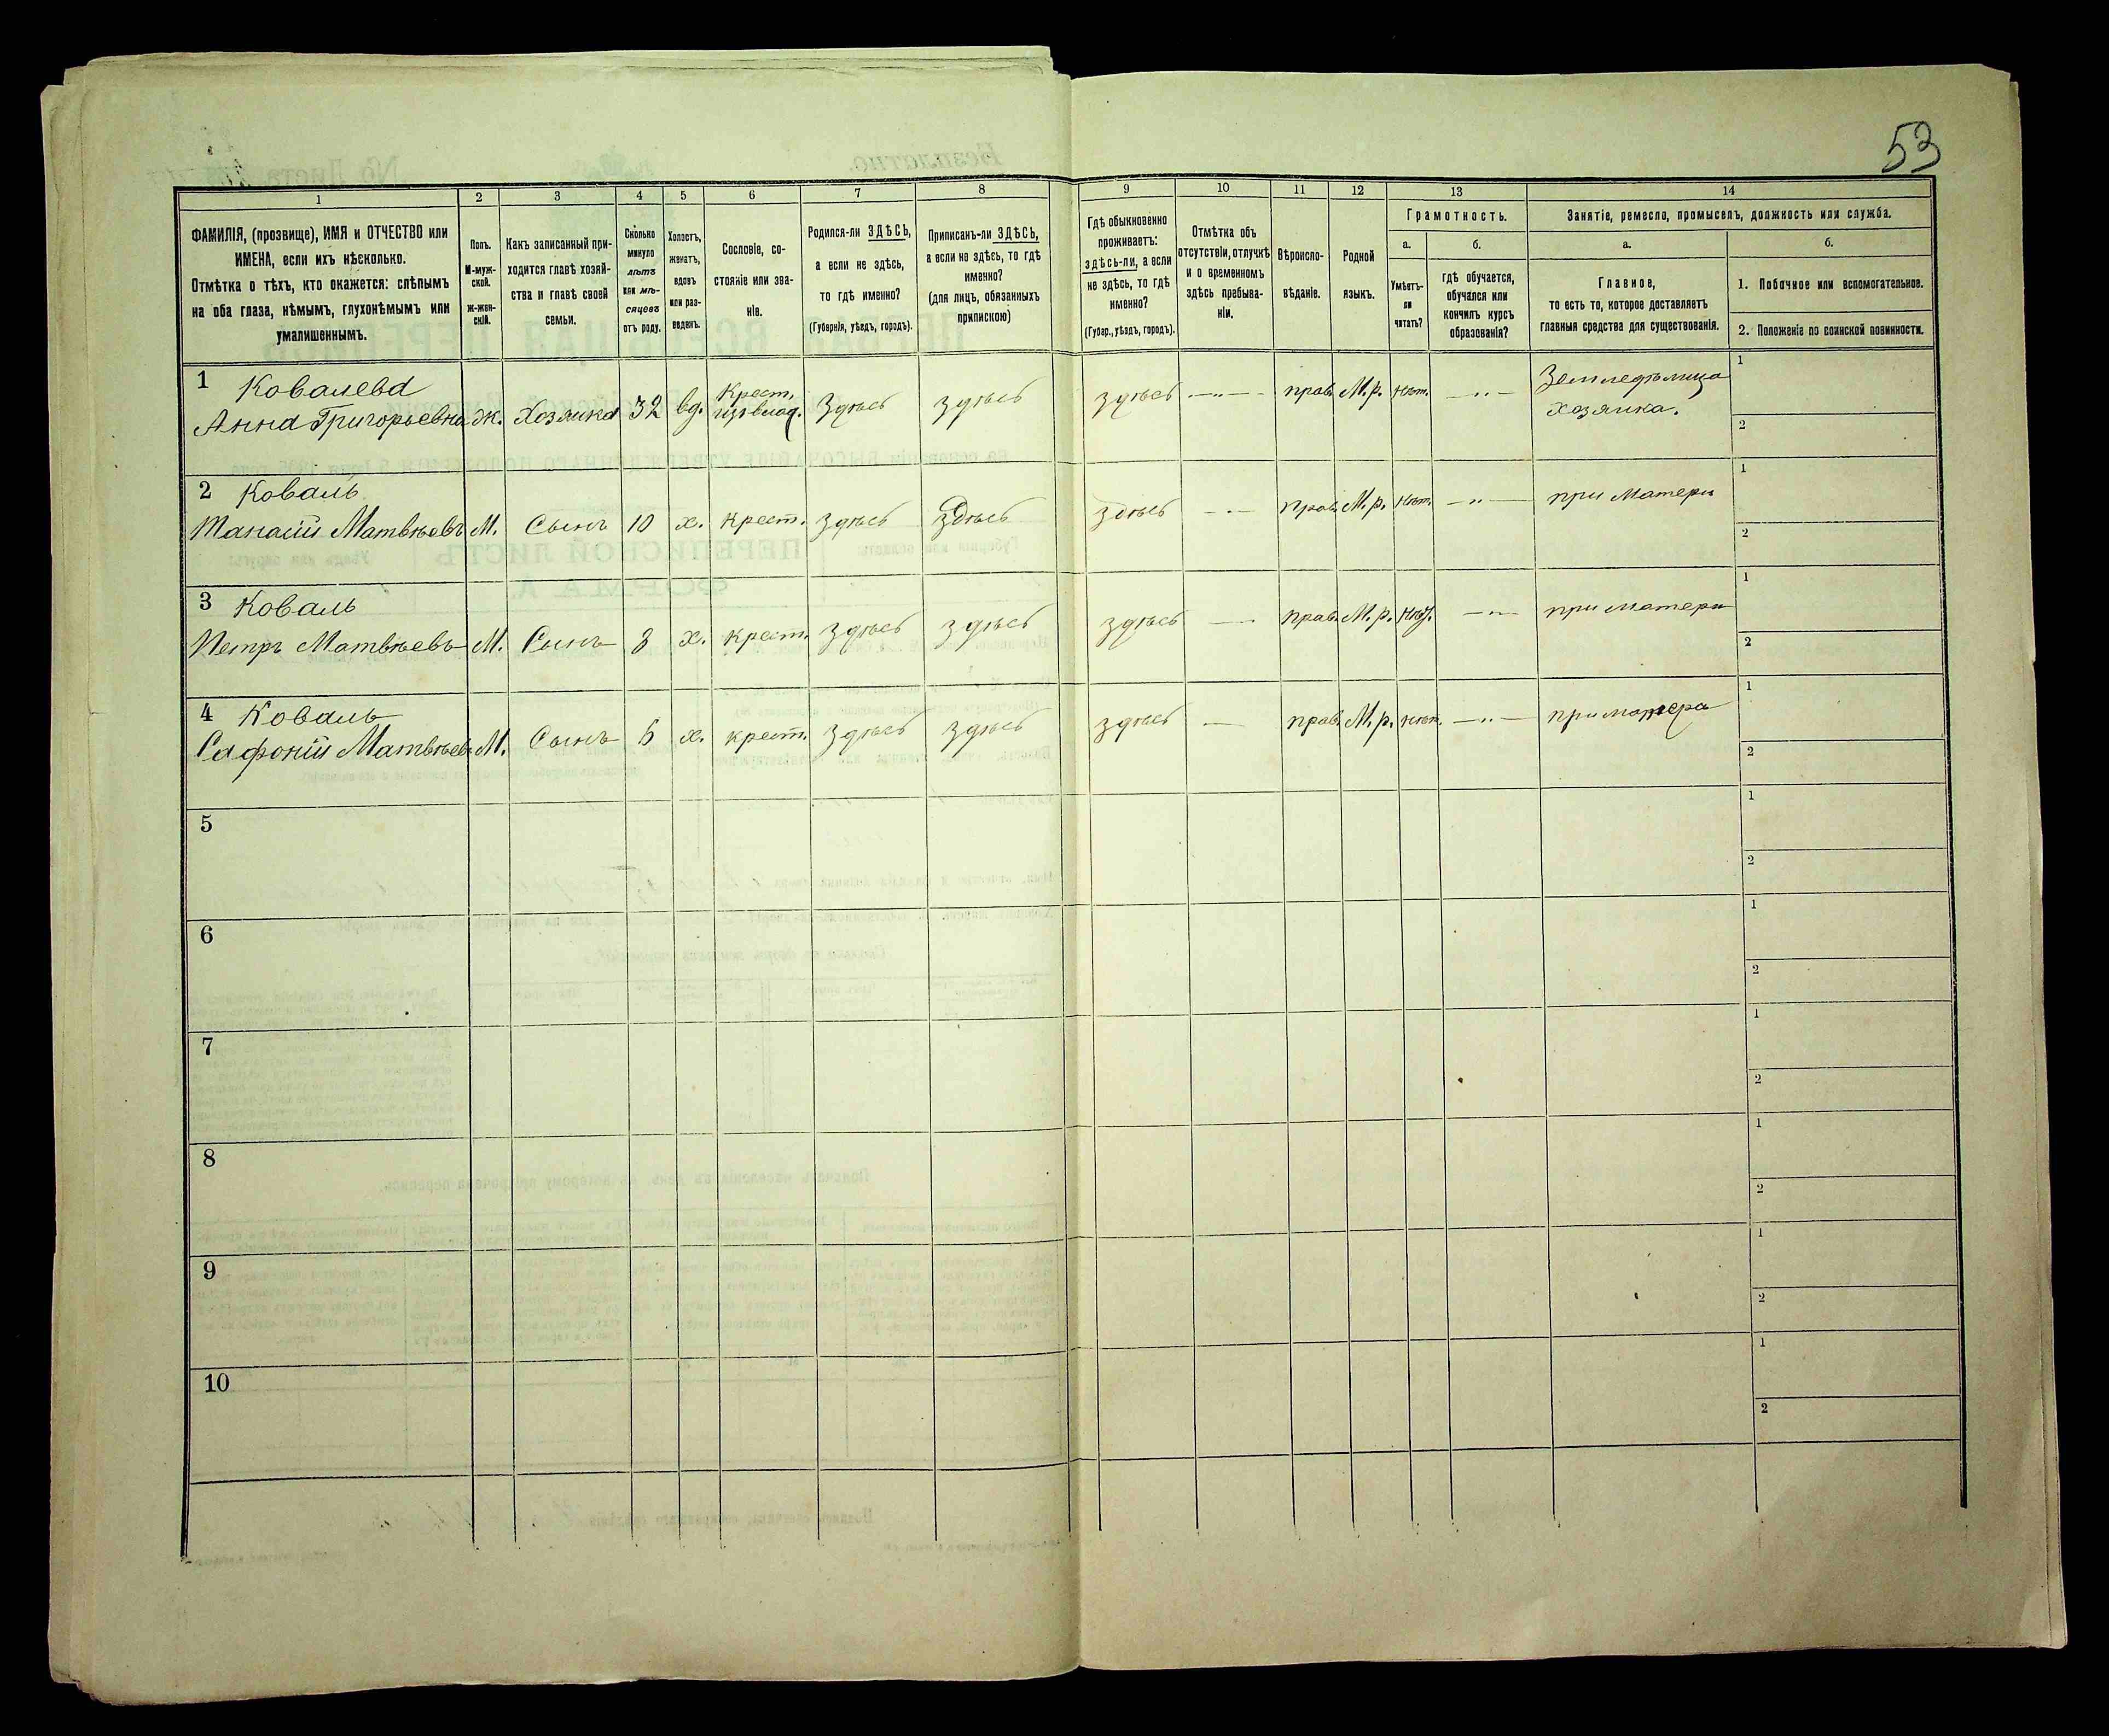 53
1
2
3
4
5
6
7
8
9
10
11
12
13
14
ФАМИЛІЯ, (прозвище), ИМЯ и ОТЧЕСТВО или
ИМЕНА, если ихъ нѣсколько.
Отмѣтка о тѣхъ, кто окажется: слѣпымъ
на оба глаза, нѣмымъ, глухонѣмымъ или
умалишеннымъ.
Полъ.
М-муж-
ской.
ж-жен-
скій.
Какъ записанный при-
ходится главѣ хозяй-
ства и главѣ своей
семьи.
Сколько
минуло
лѣтъ
или мѣ-
сяцевъ
отъ роду.
Холостъ,
женатъ,
вдовъ
или раз-
веденъ.
Сословіе, со-
стояніе или зва-
ніе.
Родился-ли ЗДѢСЬ,
а если не здѣсь,
то гдѣ именно?
(Губернія, уѣздъ, городъ).
Приписанъ-ли ЗДѢСЬ,
а если не здѣсь, то гдѣ
именно?
(для лицъ, обязанныхъ
припискою)
Гдѣ обыкновенно
проживаетъ:
здѣсь-ли, а если
не здѣсь, то гдѣ
именно?
(Губер., уѣздъ, городъ).
Отмѣтка объ
отсутствіи, отлучкѣ
и о временномъ
здѣсь пребыва-
ніи.
Вѣроиспо-
вѣданіе.
Родной
языкъ.
Грамотность.
а.
Умѣетъ-
ли
читать?
б.
гдѣ обучается,
обучался или
кончилъ курсъ
образованія?
Занятіе, ремесло, промыселъ, должность или служба.
а.
Главное,
то есть то, которое доставляетъ
главныя средства для существованія.
б.
1. Побочное или вспомогательное.
2. Положеніе по воинской повинности.
1 Ковалева
Анна Григорьевна Ж. Хозяйка 32 вд. Крест. изъ влад. Здѣсь здѣсь здѣсь —"— прав. М.р. Нѣт. —"— Земледѣлица
хозяйка.
1
2
2 Коваль
Танасій Матвѣевъ М. Сынъ 10 х. крест. здѣсь здѣсь здѣсь —"— прав. М.р. Нѣт. —"— при матери
1
2
3 Коваль
Петръ Матвѣевъ М. Сынъ 8 х. крест. здѣсь здѣсь здѣсь — прав. М.р. Нѣт. —"— при матери
1
2
4 Коваль
Сафоній Матвѣевъ М. Сынъ 5 х. крест. здѣсь здѣсь здѣсь — прав. М.р. нѣт. —"— при матери
1
2
5
1
2
6
1
2
7
1
2
8
1
2
9
1
2
10
1
2